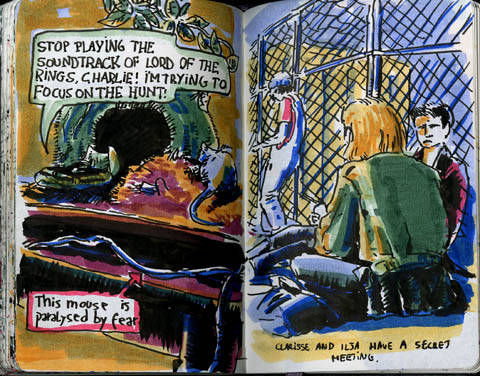 STOP PLAYING THE
SOUNDTRACK OF LORD OF THE
RINGS, CHARLIE! I'M TRYING TO
FOCUS ON THE HUNT!
This mouse is
paralysed by fear
CLARISSE AND ILJA HAVE A SECRET
MEETING.